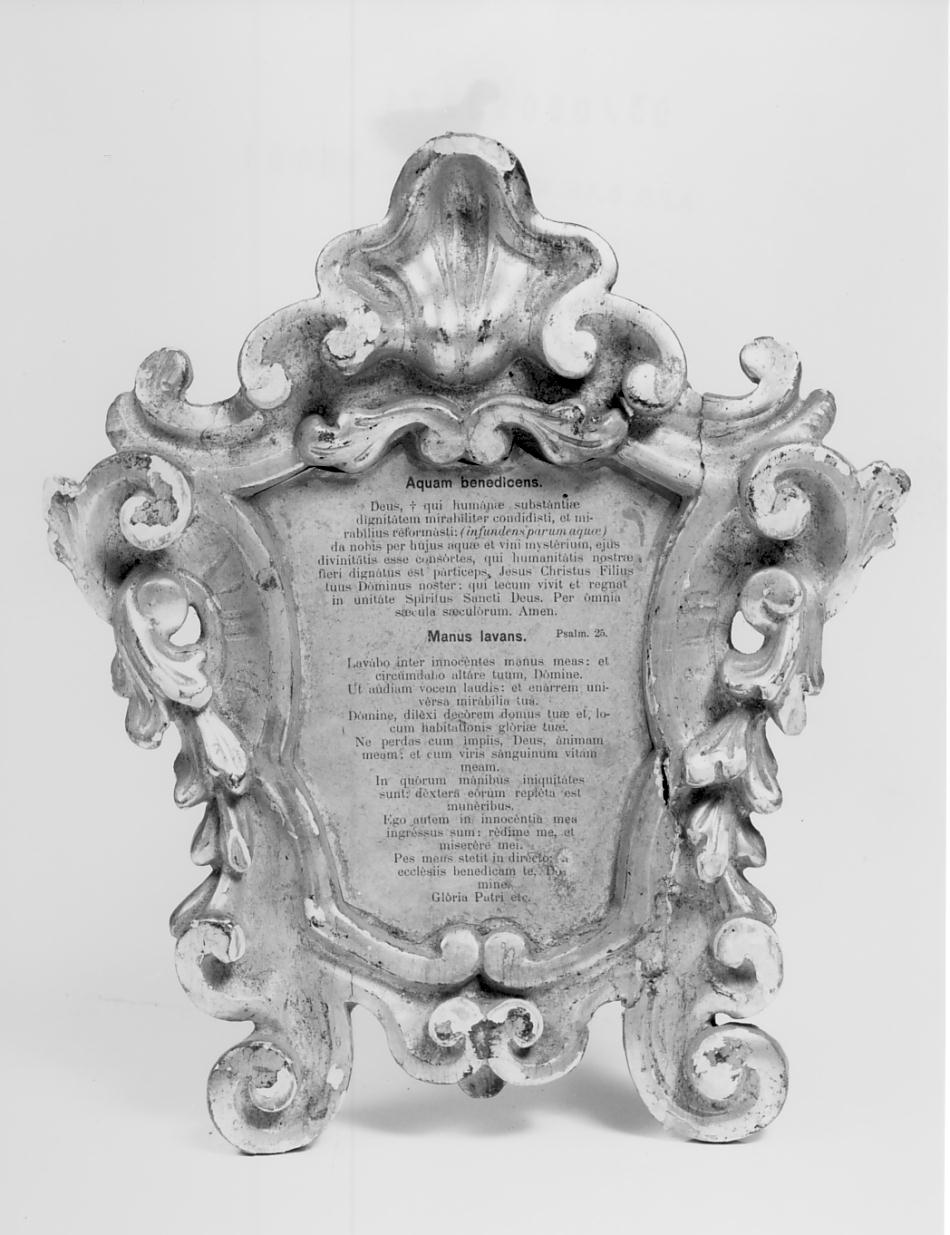 Aquam benedicens.
Deus, † qui humánæ substántiæ
dignitátem mirabíliter condidísti, et mi-
rabílius reformásti: (infundens parum aquæ)
da nobis per hujus aquæ et vini mystérium, ejus
divinitátis esse consórtes, qui humanitátis nostræ
fieri dignátus est párticeps, Jesus Christus Filius
tuus Dóminus noster: qui tecum vivit et regnat
in unitáte Spíritus Sancti Deus. Per ómnia
sæcula sæculórum. Amen.
Manus lavans. Psalm. 25.
Lavábo inter innocéntes manus meas: et
circúmdabo altáre tuum, Dómine.
Ut aúdiam vocem laudis: et enárrem uni-
vérsa mirabília tua.
Dómine, diléxi decórem domus tuæ et, lo-
cum habitatiónis glóriæ tuæ.
Ne perdas cum impiis, Deus, ánimam
meam: et cum viris sánguinum vitam
meam.
In quórum mánibus iniquitátes
sunt: déxtera eórum repléta est
munéribus.
Ego autem in innocéntia mea
ingréssus sum: rédime me, et
miserére mei.
Pes meus stetit in dirécto:
ecclésiis benedicam te, Dó-
mine.
Glória Patri etc.